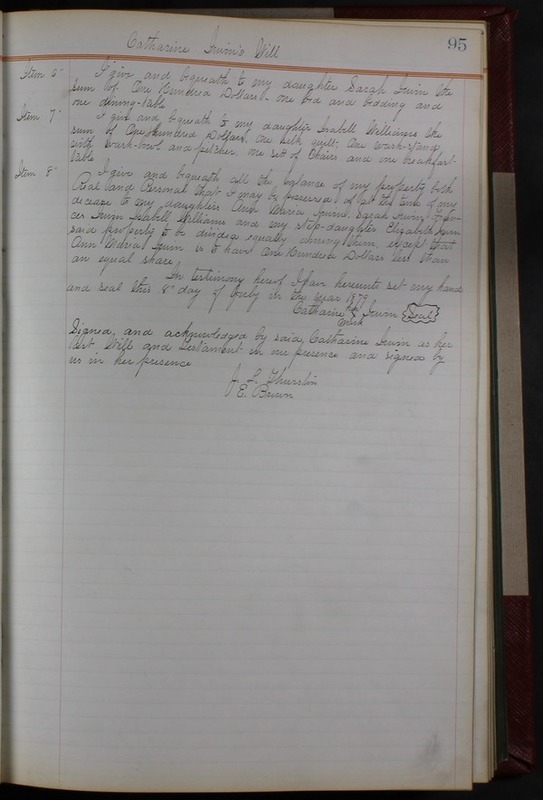 Catharine Irwin's Will
95
Item 6" I give and bequeath to my daughter Sarah Irwin the
sum of One Hundred Dollars, one bed and bedding and
one dining-table
Item 7" I give and bequeath to my daughter Isabell Williams the
sum of One Hundred Dollars. One silk quilt; One wash-stand
with wash-bowl and pitcher, one sett of Chairs and one breakfast-
table
Item 8" I give and bequeath all the balance of my property both
Real and Personal that I may be possessed of at the time of my
decease to my daughters Ann Maria Irwin, Sarah Irwin,
Irwin Isabell Williams and my step-daughter Elizabeth Irwin
said property to be divided equally among them, except that
Ann Maria Irwin is to have One Hundred Dollars less than
an equal share.
In testimony hereof I have hereunto set my hand
and seal this 8" day of July in the year 1879
Catharine Irwin Seal
mark
Signed, and acknowledged by said, Catharine Irwin as her
last Will and testament in our presence and signed by
us in her presence
J. L. Thurston
E. Brown